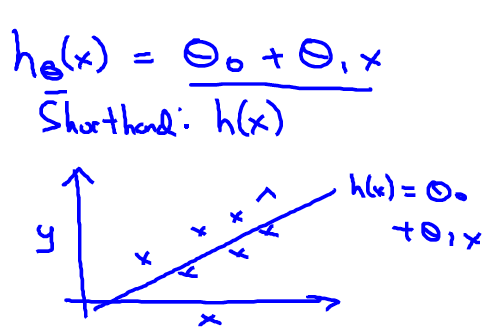 hθ(x) = θ₀ + θ₁x
Shorthand: h(x)
h(x) = θ₀
+ θ₁x
y
x